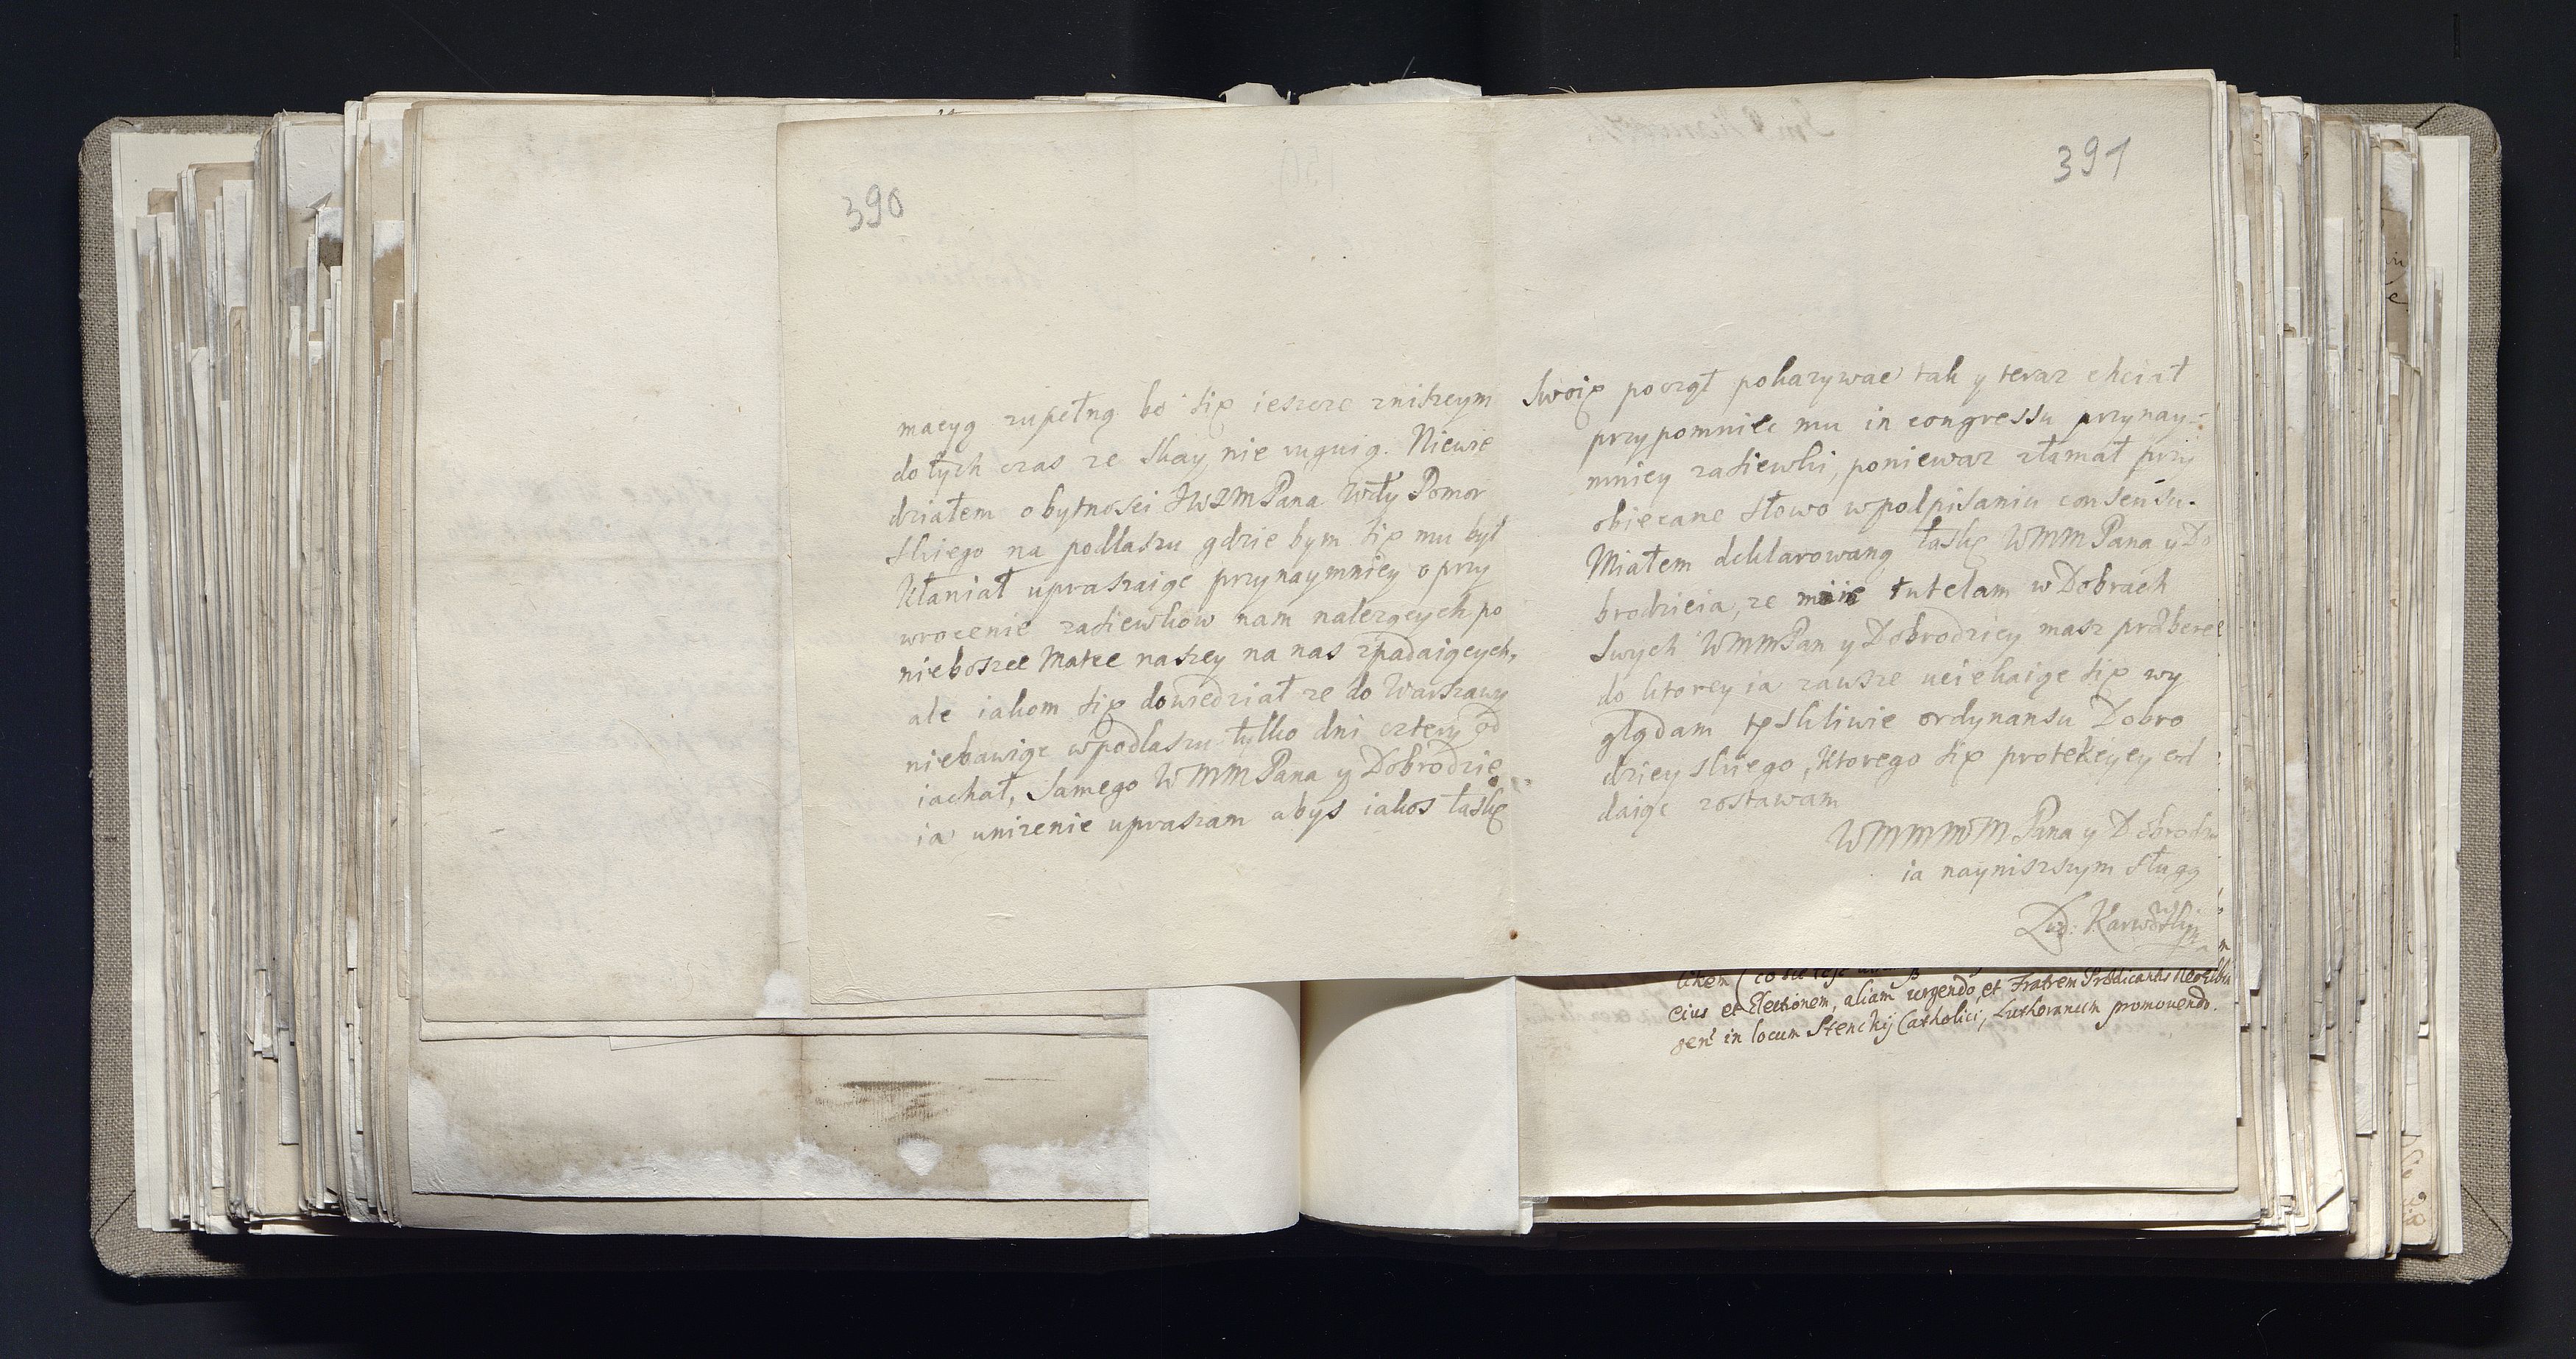 390
macyą zupełną bo się ieszcze zniszczym
do tych czas ze skay nie ruguią. Niewie
działem o bytnosci JWJMPana Wdy Pomor
skiego na podlaszu gdzie bym się mu był
kłaniał upraszaiąc przynaymniey o przy
wrocenie zasiewkow nam nalezących po
nieboszce Matce naszey na nas spadaiących,
ale iakom się dowiedział ze do Warszawy
niebawiąc w podlaszu tylko dni cztery od
iachał, Samego WMMPana y Dobrodzie
ia unizenie upraszam abys iakos łaskę
391
Swoię począł pokazywac tak y teraz chciał
przypomniec mu in congressu przynay-
mniey zasiewki, poniewaz złamał przy
obiecane słowo w polpisaniu consensu.
Miałem deklarowaną łaskę WMMPana y Do
brodzieia, ze mnie tutelam w Dobrach
Swych WMMPan y Dobrodziey masz
do ktorey ia zawsze uciekaiąc się wy
glądam tęskliwie ordynansu Dobro
dzieyskiego, ktorego się protekcyey od
daiąc zostawam
WMMMMPana y Dobrodzie
ia nayniszszym sługą
Lud: Karwowskij
cius et Electionem, aliam urgendo, et Fratrem Prædicantis
gens in locum Stenckij Catholici, Lutheranum promovendo.